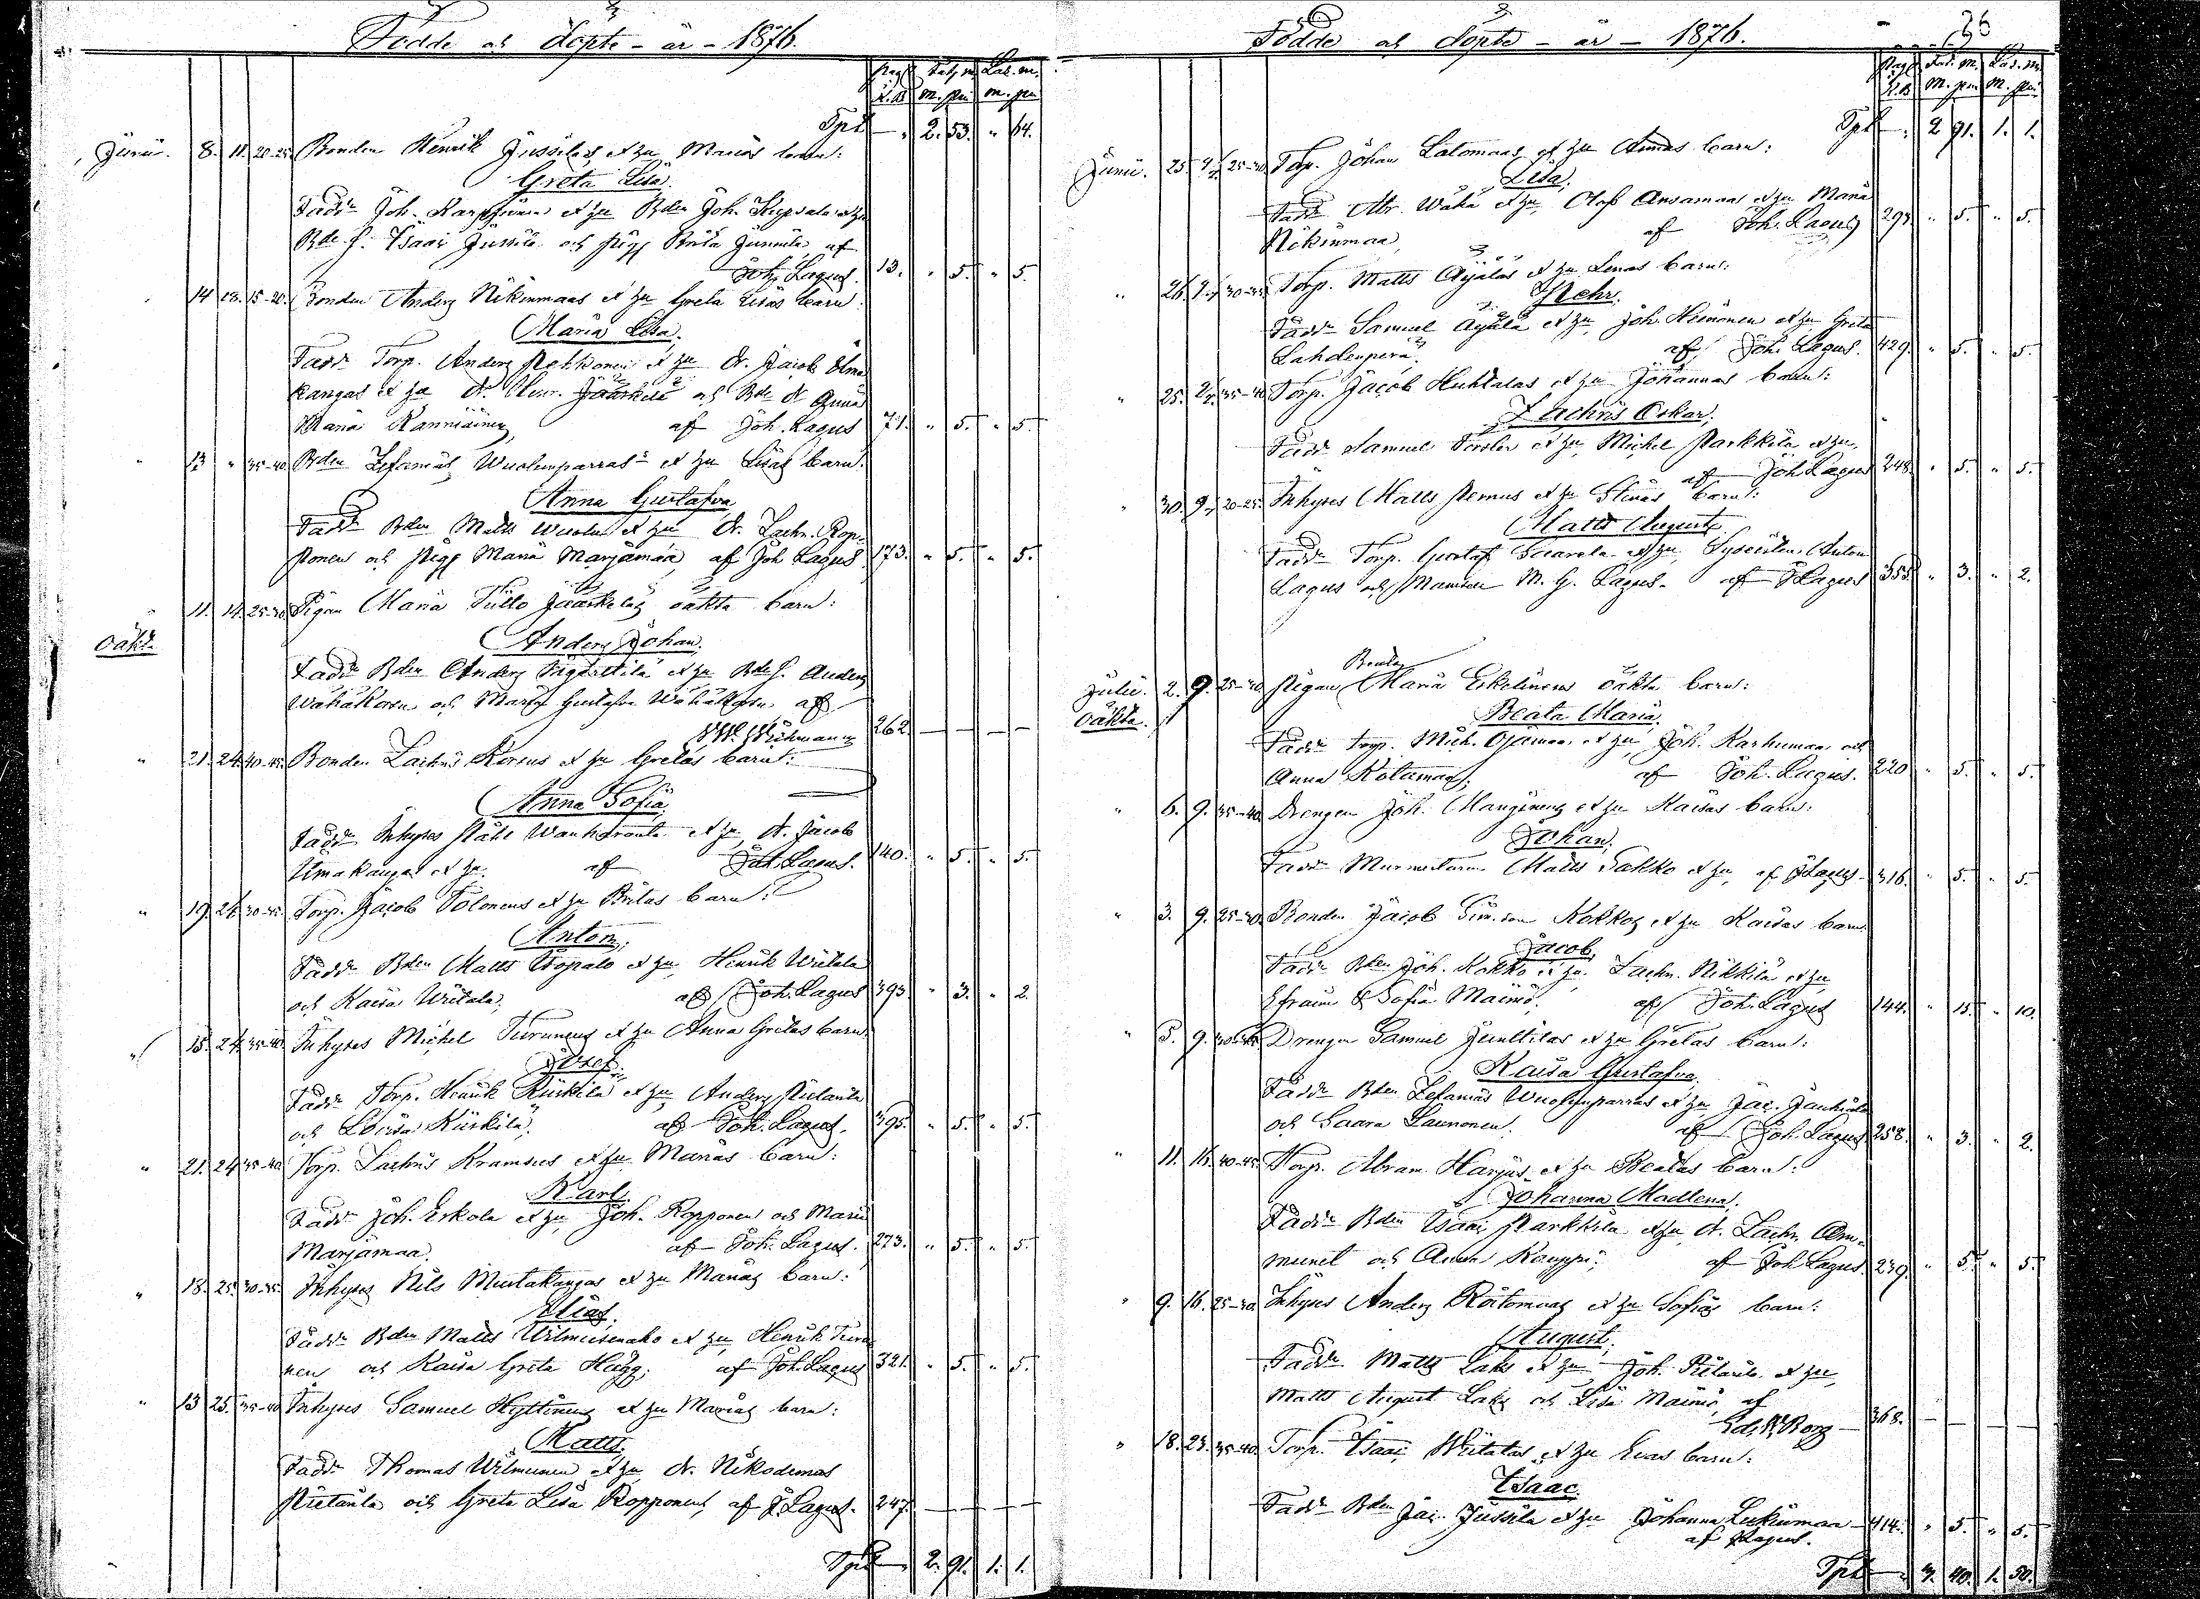 Födde och Döpte - år - 1876.
Pag. K.B. Fatt. m. Las. m.
M. pni M. pni
Tpt " 2. 53. " 64.
Junii. 8. 11. 20-25. Bonden Henrik Jussilas et Hu Marias barn:
Greta Lisa.
Fadd. Joh. Karp et Hu Bden Joh. et Hu
Bde S. Isaac Jussila och Pig. Brita Junnila, af
Joh. Lagus. 13. " 5. " 5.
" 14. 18. 15-20. Bonden Anders Nikinmaas et Hu Greta Lisas barn
Maria Lisa.
Fadd. Torp. Anders Petkonen et Hu D. Jacob Elma
kangas et Hu D. Henr. Jäärkelä och Bde D. Anna
Maria Ranniainen, af Joh. Lagus 71. " 5. " 5.
" 13. " 35-40. Bden Zefanias Wuolenparras et Hu Lisas barn:
Anna Gustafva
Fadd. Bden Matts Wuolen et Hu D. Zachr. Rop-
ponen och Pig. Maria Marjamaa, af Joh Lagus 173. " 5. " 5.
11. 14. 25-30. Pigan Maria Tiitto Jäärkeläs oäkta barn:
oäkt. Anders Johan.
Fadd. Bden Anders et Hu Bde S. Anders
Wähäkorva och Maria Gustafva Wähäkorva af
Wichmann 262. — — — —
" 21. 24. 40-45. Bonden Zachris Korsus et Hu Gretas barn:
Anna Sofia,
Fadd. Inhyses Påhl et Hu, D. Jacob
Elmakangas et Hu. af Joh. Lagus. 140. " 5. " 5.
" 19. 24. 30-35. Torp. Jacob Tolonens et Hu Britas barn:
Anton,
Fadd. Bden Matts et Hu, Henrik Wiitala
och Kaisa Wiitala, af Joh. Lagus 393. " 3. " 2.
" 15. 24. 35-40. Inhyses Michel Turunens et Hu Anna Gretas barn:
Josef.
Fadd. Torp. Henrik Kiiskilä et Hu Anders Pietarila
och Lovisa Kiiskilä, af Joh. Lagus. 395. " 5. " 5.
" 21. 24. 35-40. Torp. Zachris Kramsus et Hu Marias barn:
Karl.
Fadd. Joh. Erkola et Hu, Joh. Ropponen och Maria
Marjamaa. af Joh. Lagus. 273. " 5. " 5.
" 18. 25. 30-35. Inhyses Nils Mustakangas et Hu Marias barn:
Elias.
Fadd. Bden Matts Wilmusenaho et Hu, Henrik Turu
nen och Kaisa Greta Hagg, af Joh. Lagus 321. " 5. " 5.
" 13. 25. 35-40. Inhyses Samuel Hyttinens et Hu Marias barn:
Matts.
Fadd. Thomas Wilmunen et Hu, D. Nikodemus
Pietarila och Greta Lisa Ropponen, af J. Lagus. 247. — — — —
Tpt " 2. 91. 1. 1.
Födde och Döpte - år - 1876. 36
Pag. K.B. Fatt. m. Las. m.
M. pni M. pni
Tpt " 2. 91. 1. 1.
Junii. 25. 2/7 25-30. Torp. Johan Latomaas et Hu Annas barn:
Lisa,
Fadd. Abr. Wäkä et Hu, Olof Ansamaas et Hu Maria
Nikinmaa, af Joh. Lagus 293. " 5. " 5.
" 26. 2/7 30-35. Torp. Matts Äijäläs et Hu Lenas barn:
Pehr.
Fadd. Samuel Äijälä et Hu, Joh. Heinonen et Hu Greta
Lahdenperä, af Joh. Lagus. 429. " 5. " 5.
" 25. 2/7. 35-40. Torp. Jacob Huhtalas et Hu Johannas barn:
Zachris Oskar,
Fadd. Samuel et Hu, Michel Parkkila et Hu,
af Joh Lagus 248. " 5. " 5.
" 30. 9/7 20-25. Inhyses Matts Pernus et Hu Stinas barn:
Matts August,
Fadd. Torp. Gustaf et Hu, Anton
Lagus och Mamsell M. G. Lagus. af J Lagus 355. " 3. " 2.
Julii. 2. 9. 25-30. Pigan Maria Eskelinens oäkta barn:
oäkta. Beata Maria,
Fadd. Torp. Mich. Ojamaa et Hu, Joh. Karhumaa och
Anna Kotamaa, af Joh. Lagus. 220 " 5. " 5.
" 6. 9. 35-40. Drengen Joh. Manginens et Hu Kaisas barn:
Johan,
Fadd. Matts Sakko et Hu, af J Lagus. 316. " 5. " 5.
" 3. 9. 25-30. Bonden Jacob Sim.son Kokkos et Hu Kaisas barn
Jacob.
Fadd. Bden Joh. Kokko et Hu, Zachr. Nikkilä et Hu
Efraim & Sofia Mainio. af Joh. Lagus 144. " 15. " 10.
" 5. 9. Drengen Samuel Junttilas et Hu Gretas barn:
Kaisa Gustafva,
Fadd. Bden Zefanias Wuolenparras et Hu Jac.
och Saara Launonen. af Joh. Lagus 258. " 3. " 2.
" 11. 16. 40-45. Torp. Abram Harjus et Hu Beatas barn:
Johanna Madlena,
Fadd. Bden Isaac Parkkila et Hu, D. Zachr. Em-
munet och Anna Kauppi, af Joh Lagus. 239. " 5. " 5.
" 9. 16. 25-30. Inhyses Anders et Hu Sofias barn:
August.
Fadd. Matts Laks et Hu Joh. Pietarila et Hu,
Matts August Laks och Lisa Mainio, af
Borg — 368. — — — —
" 18. 23. 35-40. Torp. Isaac Wiitalas et Hu Evas barn:
Isaac.
Fadd. Bden Jac. Jussila et Hu Johanna Leskimaa — 414. " 5. " 5.
af Lagus.
Tpt " 3. 49. 1. 50.